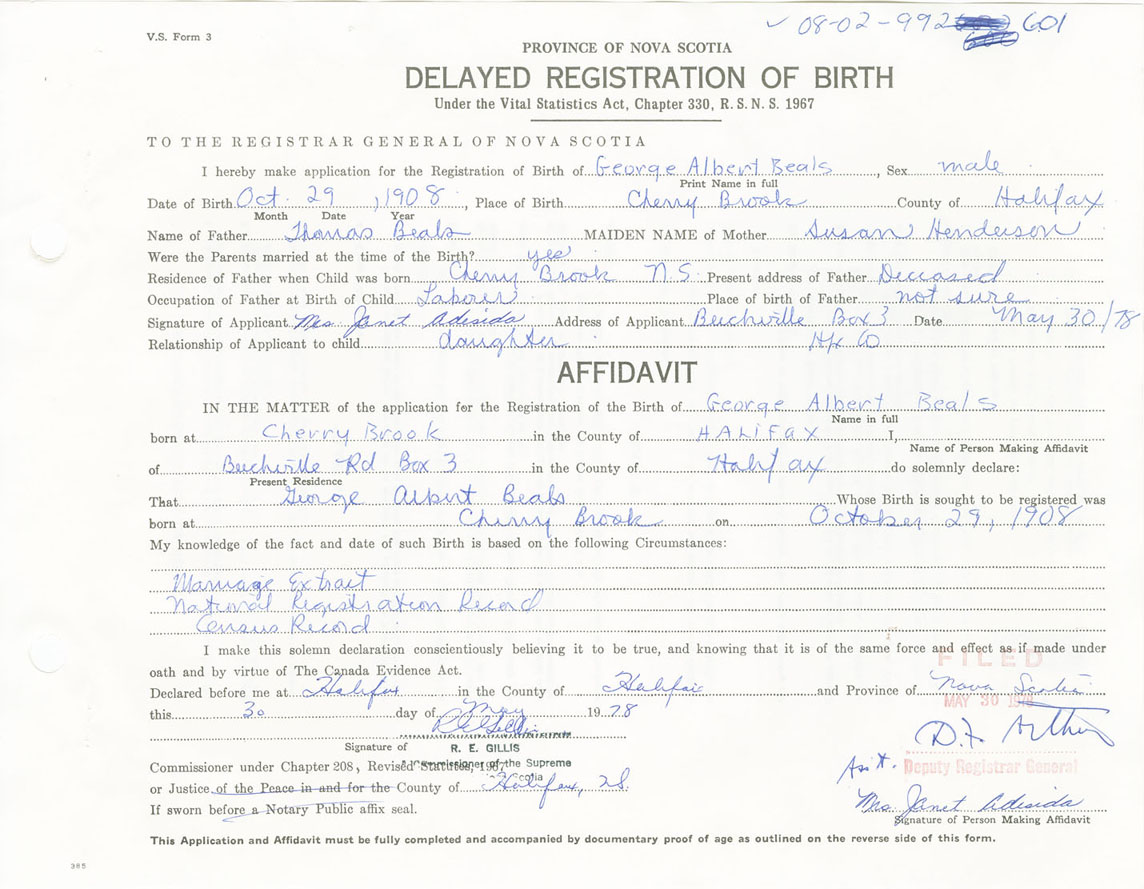 08-02-992 601
V.S. Form 3
PROVINCE OF NOVA SCOTIA
DELAYED REGISTRATION OF BIRTH
Under the Vital Statistics Act, Chapter 330, R.S.N.S. 1967
TO THE REGISTRAR GENERAL OF NOVA SCOTIA
I hereby make application for the Registration of Birth of George Albert Beals, Sex male
Print Name in full
Date of Birth Oct. 29, 1908, Place of Birth Cherry Brook County of Halifax
Month Date Year
Name of Father Thomas Beals MAIDEN NAME of Mother Susan Henderson
Were the Parents married at the time of the Birth? yes
Residence of Father when Child was born Cherry Brook N.S. Present address of Father Deceased
Occupation of Father at Birth of Child Laborer Place of birth of Father not sure
Signature of Applicant Mrs Janet Adesida Address of Applicant Beechville Box 3 Date May 30/78
Relationship of Applicant to child daughter Hfx Co
AFFIDAVIT
IN THE MATTER of the application for the Registration of the Birth of George Albert Beals
Name in full
born at Cherry Brook in the County of HALIFAX I,
Name of Person Making Affidavit
of Beechville Rd Box 3 in the County of Halifax do solemnly declare:
Present Residence
That George Albert Beals Whose Birth is sought to be registered was
born at Cherry Brook on October 29, 1908
My knowledge of the fact and date of such Birth is based on the following Circumstances:
Marriage Extrait
National Registration Record
Census Record
I make this solemn declaration conscientiously believing it to be true, and knowing that it is of the same force and effect as if made under
oath and by virtue of The Canada Evidence Act.
FILED
Declared before me at Halifax in the County of Halifax and Province of Nova Scotia
MAY 30
this 30 day of May 1978
R E Gillis
D.F. Arthur
Signature of R. E. GILLIS
Commissioner under Chapter 208, Revised Statutes, 1967
Commissioner of the Supreme
Ass't. Deputy Registrar General
or Justice of the Peace in and for the County of Halifax, N.S.
Mrs Janet Adesida
If sworn before a Notary Public affix seal.
Signature of Person Making Affidavit
This Application and Affidavit must be fully completed and accompanied by documentary proof of age as outlined on the reverse side of this form.
365